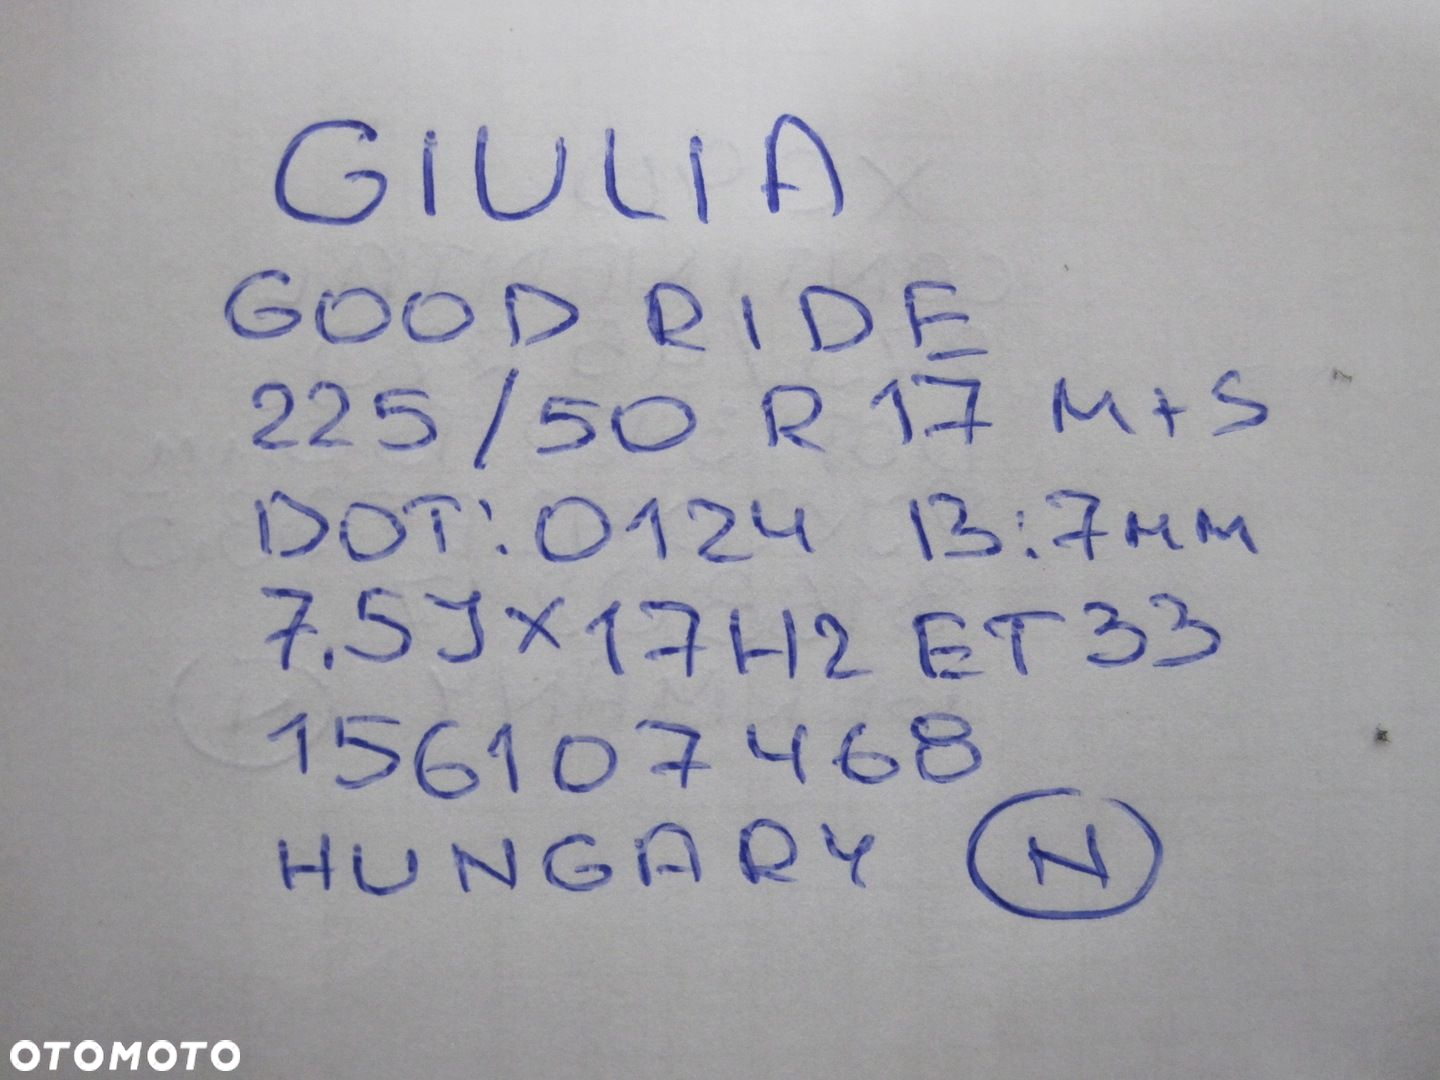 GIULIA
GOOD RIDE
225/50 R 17 M+S
DOT: 0124 B:7mm
7.5J×17H2 ET33
156107468
HUNGARY N
OTOMOTO